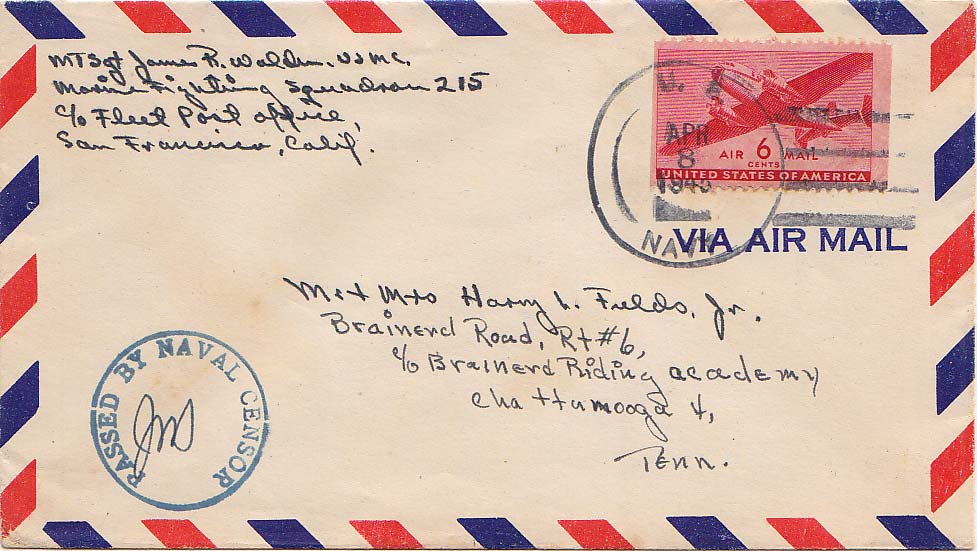 MTSgt James R. Walden, USMC.
Marine Fighting Squadron 215
c/o Fleet Post Office,
San Francisco, Calif.
U. S.
APR
8
1945
NAVY
AIR 6 MAIL
CENTS
UNITED STATES OF AMERICA
VIA AIR MAIL
Mr & Mrs Harry L. Fields, Jr.
Brainerd Road, Rt #6,
c/o Brainerd Riding academy
Chattanooga 4,
Tenn.
PASSED BY NAVAL CENSOR